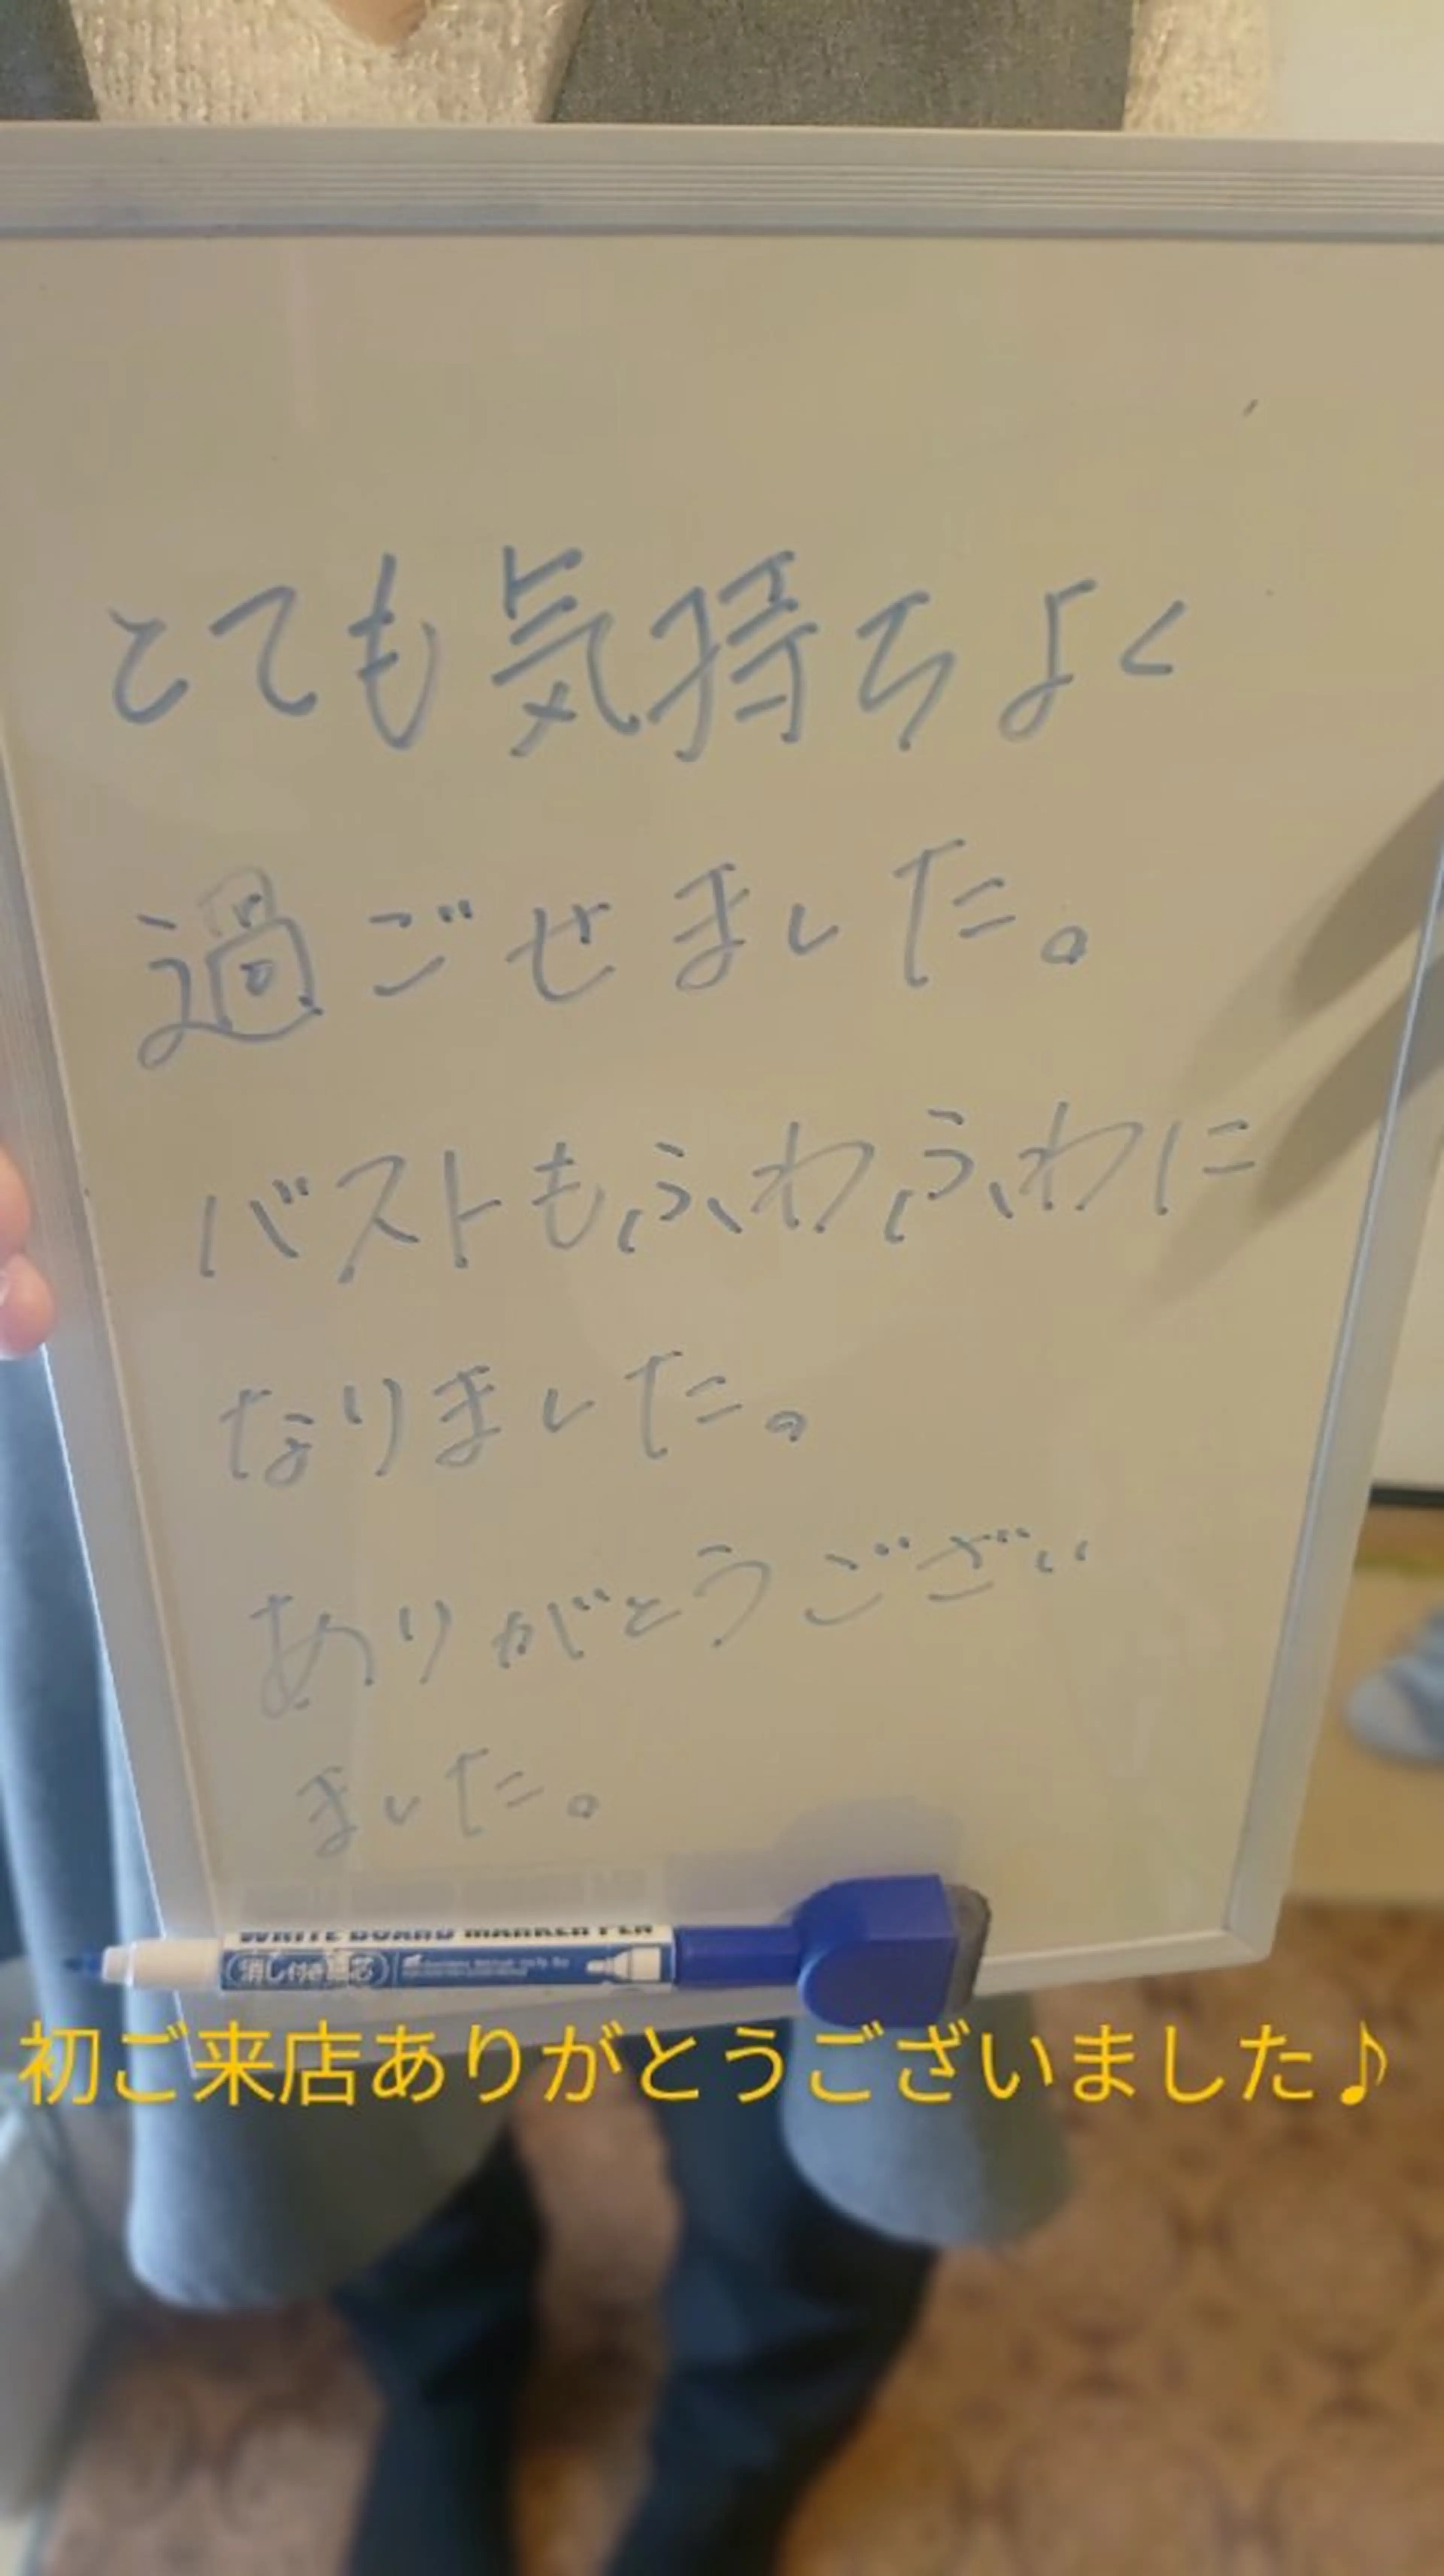 とても気持ちよく
過ごせました。
バストもふわふわに
なりました。
ありがとうござい
ました。
WHITE BOARD MARKER PEN
消し付き
初ご来店ありがとうございました♪